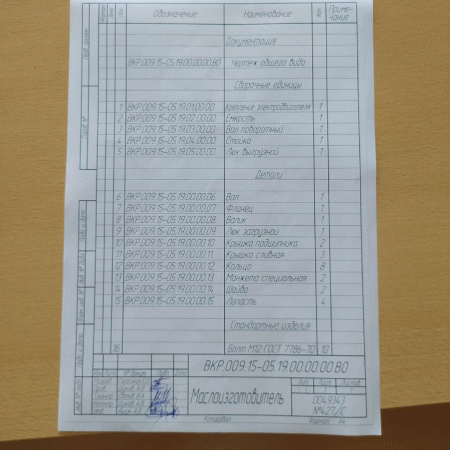 Обозначение Наименование Приме-
чание
Документация
ВКР.009.15-05.19.00.00.00.ВО Чертеж общего вида
Сборочные единицы
1 ВКР.009.15-05.19.01.00.00 Крепление электродвигателя 1
2 ВКР.009.15-05.19.02.00.00 Емкость 1
3 ВКР.009.15-05.19.03.00.00 Вал поворотный 1
4 ВКР.009.15-05.19.04.00.00 Стойка 1
5 ВКР.009.15-05.19.05.00.00 Люк выгрузной 1
Детали
6 ВКР.009.15-05.19.00.00.06 Вал 1
7 ВКР.009.15-05.19.00.00.07 Фланец 1
8 ВКР.009.15-05.19.00.00.08 Валик 1
9 ВКР.009.15-05.19.00.00.09 Люк загрузной 1
10 ВКР.009.15-05.19.00.00.10 Крышка подшипника 2
11 ВКР.009.15-05.19.00.00.11 Крышка сливная 3
12 ВКР.009.15-05.19.00.00.12 Кольцо 8
13 ВКР.009.15-05.19.00.00.13 Манжета специальная 2
14 ВКР.009.15-05.19.00.00.14 Шайба 2
15 ВКР.009.15-05.19.00.00.15 Лопасть 4
Стандартные изделия
16 Болт М12 ГОСТ 7786-70 10
ВКР.009.15-05.19.00.00.00.ВО
Маслоизготовитель
0049343
№427/С
Копировал Формат А4